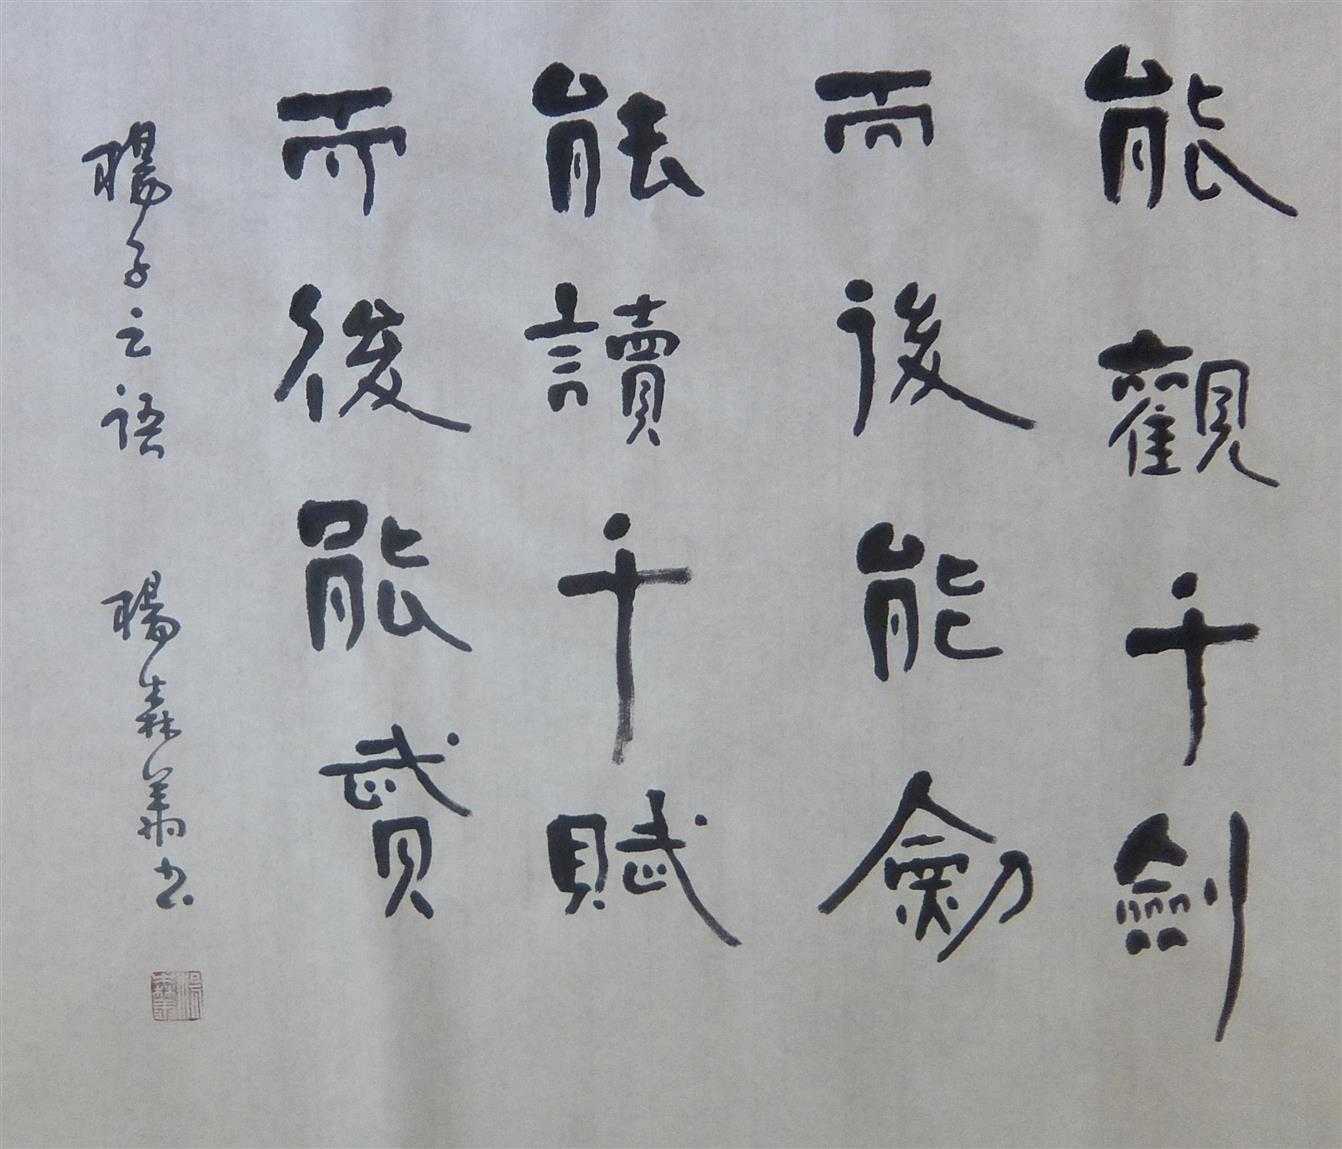 能觀千劍
而後能劒
能讀千賦
而後能賦
楊子之語 楊森華書